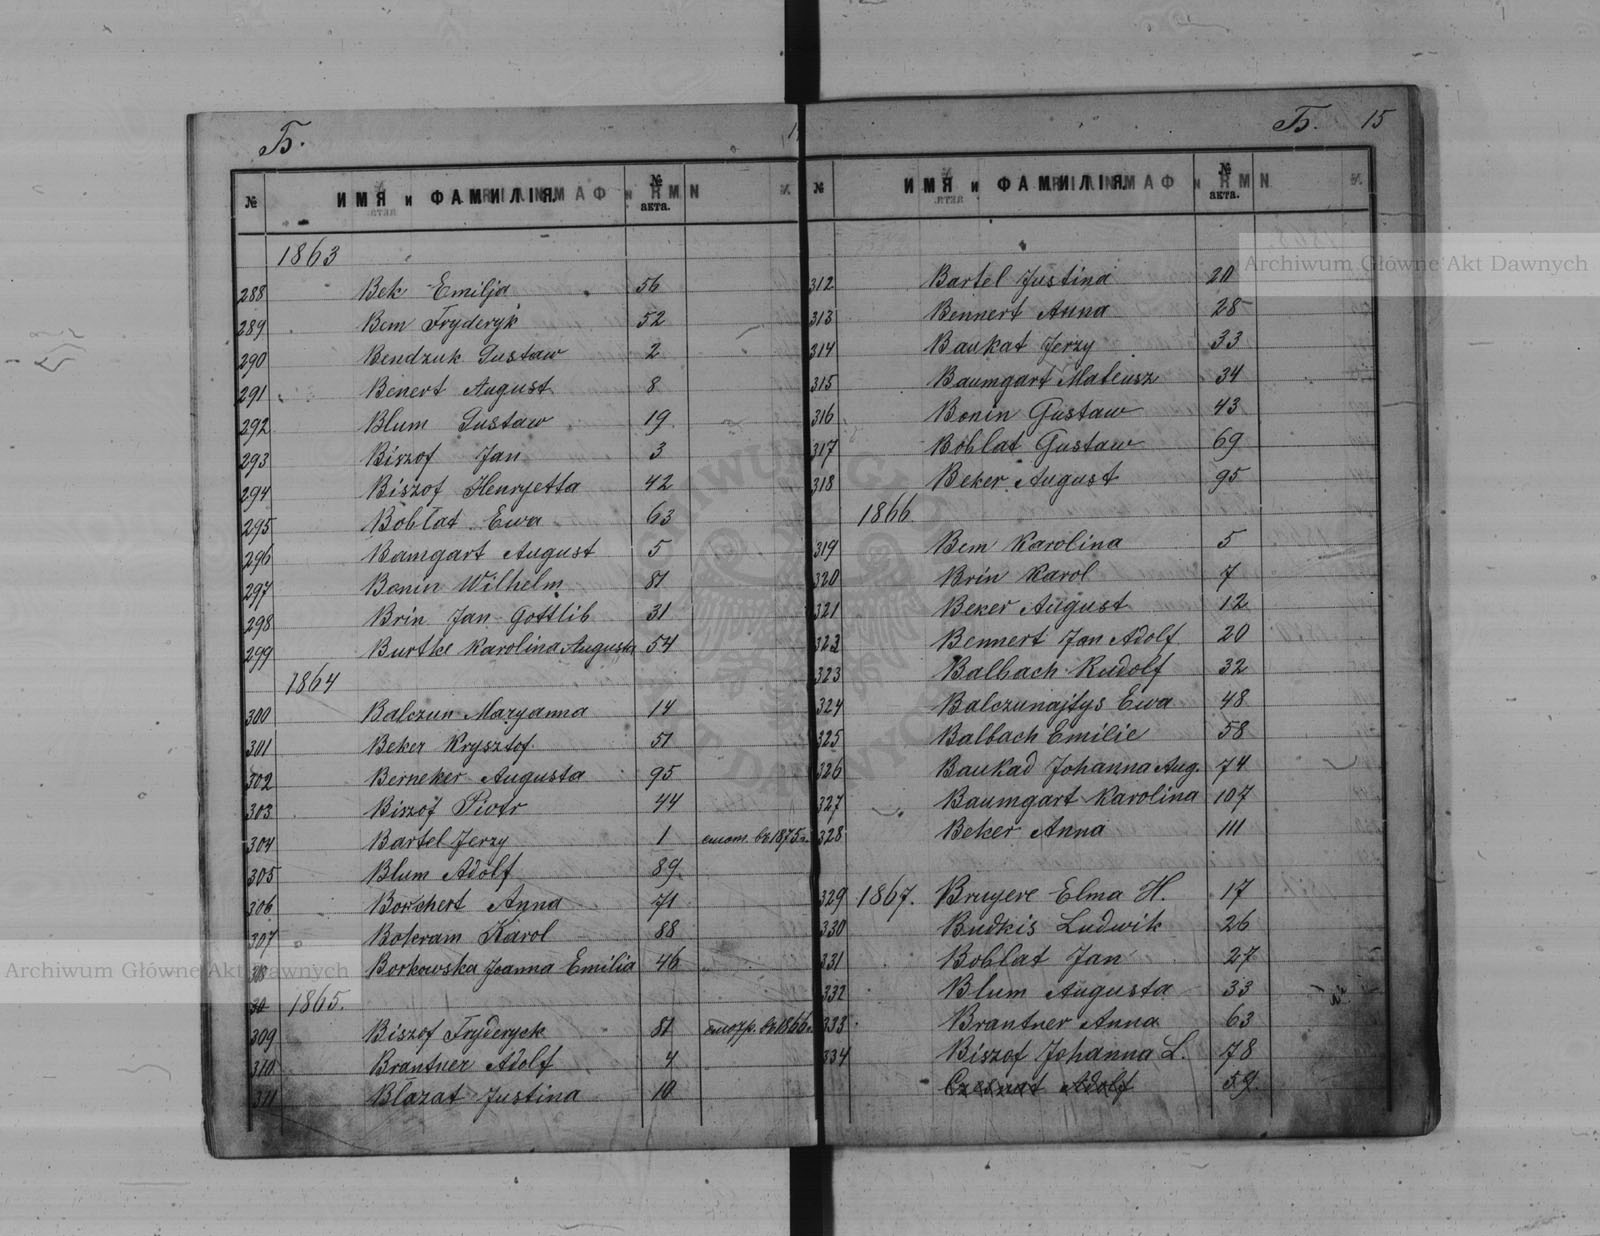 Б.
№ ИМЯ и ФАМИЛІЯ. № акта.
1863
288 Bek Emilja 56
289 Bem Fryderyk 52
290 Bendzuk Gustaw 2
291 Benert August 8
292 Blum Gustaw 19
293 Biszof Jan 3
294 Biszof Henryetta 42
295 Bobłat Ewa 63
296 Bamgart August 5
297 Bonin Wilhelm 81
298 Brin Jan Gottlib 31
299 Burtke Karolina Augusta 54
1864
300 Balczun Maryanna 14
301 Beker Krysztof 51
302 Berneker Augusta 95
303 Biszof Piotr 44
304 Bartel Jerzy 1 смот. въ 1875
305 Blum Adolf 89
306 Borchert Anna 71
307 Bokram Karol 88
308 Borkowska Joanna Emilia 46
1865.
309 Biszof Fryderyck 81 въ 1866
310 Brantner Adolf 4
311 Blazat Justina 10
Б. 15
№ ИМЯ и ФАМИЛІЯ. № акта.
312 Bartel Justina 20
313 Bennert Anna 28
314 Baukat Jerzy 33
315 Baumgart Mateusz 34
316 Bonin Gustaw 43
317 Boblat Gustaw 69
318 Beker August 95
1866
319 Bem Karolina 5
320 Brin Karol 7
321 Beker August 12
322 Bennert Jan Adolf 20
323 Balbach Rudolf 32
324 Balczunajtys Ewa 48
325 Balbach Emilie 58
326 Baukad Johanna Aug. 74
327 Baumgart Karolina 107
328 Beker Anna 111
329 1867. Bruyere Elma H. 17
330 Budkis Ludwik 26
331 Boblat Jan 27
332 Blum Augusta 33
333 Brantner Anna 63
334 Biszof Johanna L. 78
Adolf 59
Archiwum Główne Akt Dawnych
Archiwum Główne Akt Dawnych